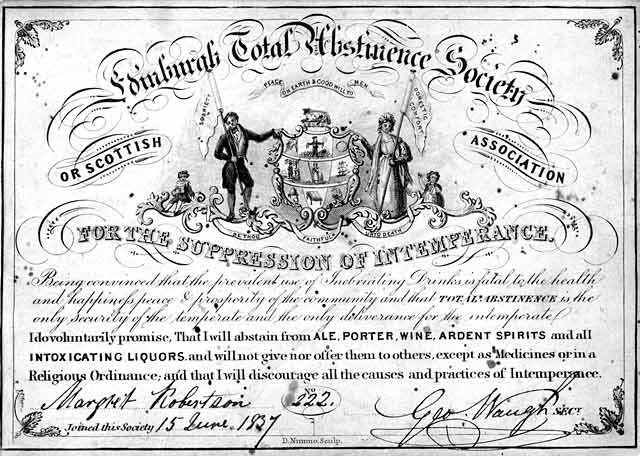 Edinburgh Total Abstinence Society
PEACE ON EARTH & GOOD WILL TO MEN
SOBRIETY
DOMESTIC COMFORT
OR SCOTTISH ASSOCIATION
BE THOU FAITHFUL UNTO DEATH
FOR THE SUPPRESSION OF INTEMPERANCE.
Being convinced that the prevalent use of Inebriating Drinks is fatal to the health
and happiness peace & prosperity of the community and that TOTAL ABSTINENCE is the
only security of the temperate and the only deliverance for the intemperate
I do voluntarily promise, That I will abstain from ALE, PORTER, WINE, ARDENT SPIRITS and all
INTOXICATING LIQUORS, and will not give nor offer them to others, except as Medicines or in a
Religious Ordinance; and that I will discourage all the causes and practices of Intemperance.
Margret Robertson No 222. Geo. Waugh SECY.
Joined this Society 15 June 1837
D. Nimmo. Sculp.